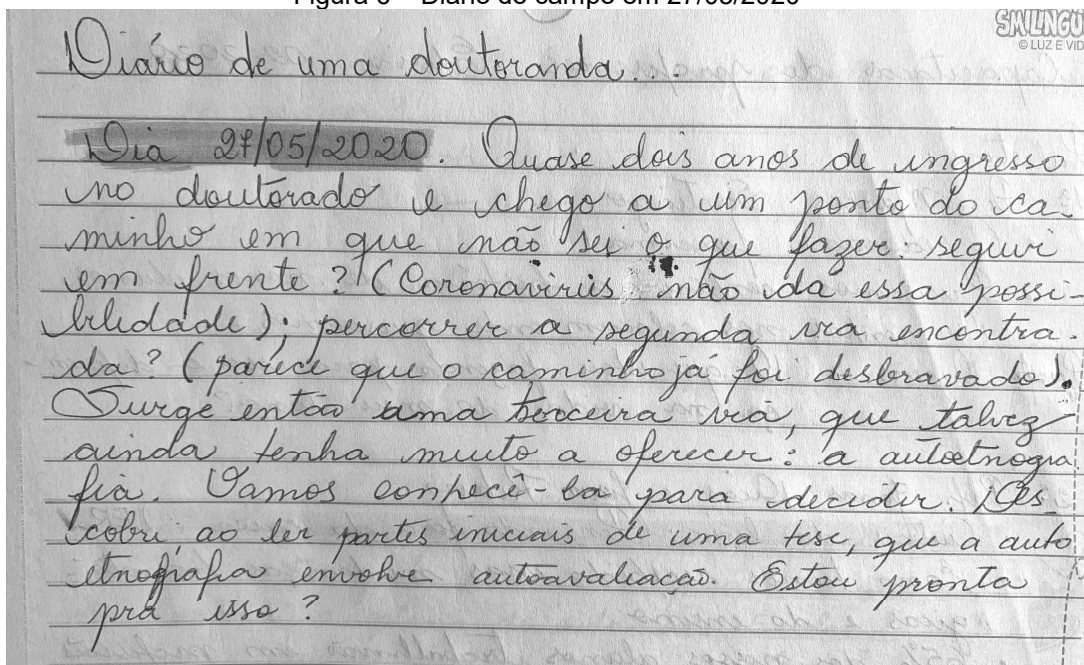 Figura 6 – Diário de campo em 27/05/2020
SMILINGU
© LUZ E VID
Diário de uma doutoranda...
Dia 27/05/2020. Quase dois anos de ingresso
no doutorado e chego a um ponto do ca-
minho em que não sei o que fazer: seguir
em frente? (Coronavírus não da essa possi-
bilidade); percorrer a segunda via encontra-
da? (parece que o caminho já foi desbravado).
Surge então uma terceira via, que talvez
ainda tenha muito a oferecer: a autoetnogra
fia. Vamos conhecê-la para decidir. Des-
cobri, ao ler partes iniciais de uma tese, que a auto
etnografia envolve autoavaliação. Estou pronta
pra isso?